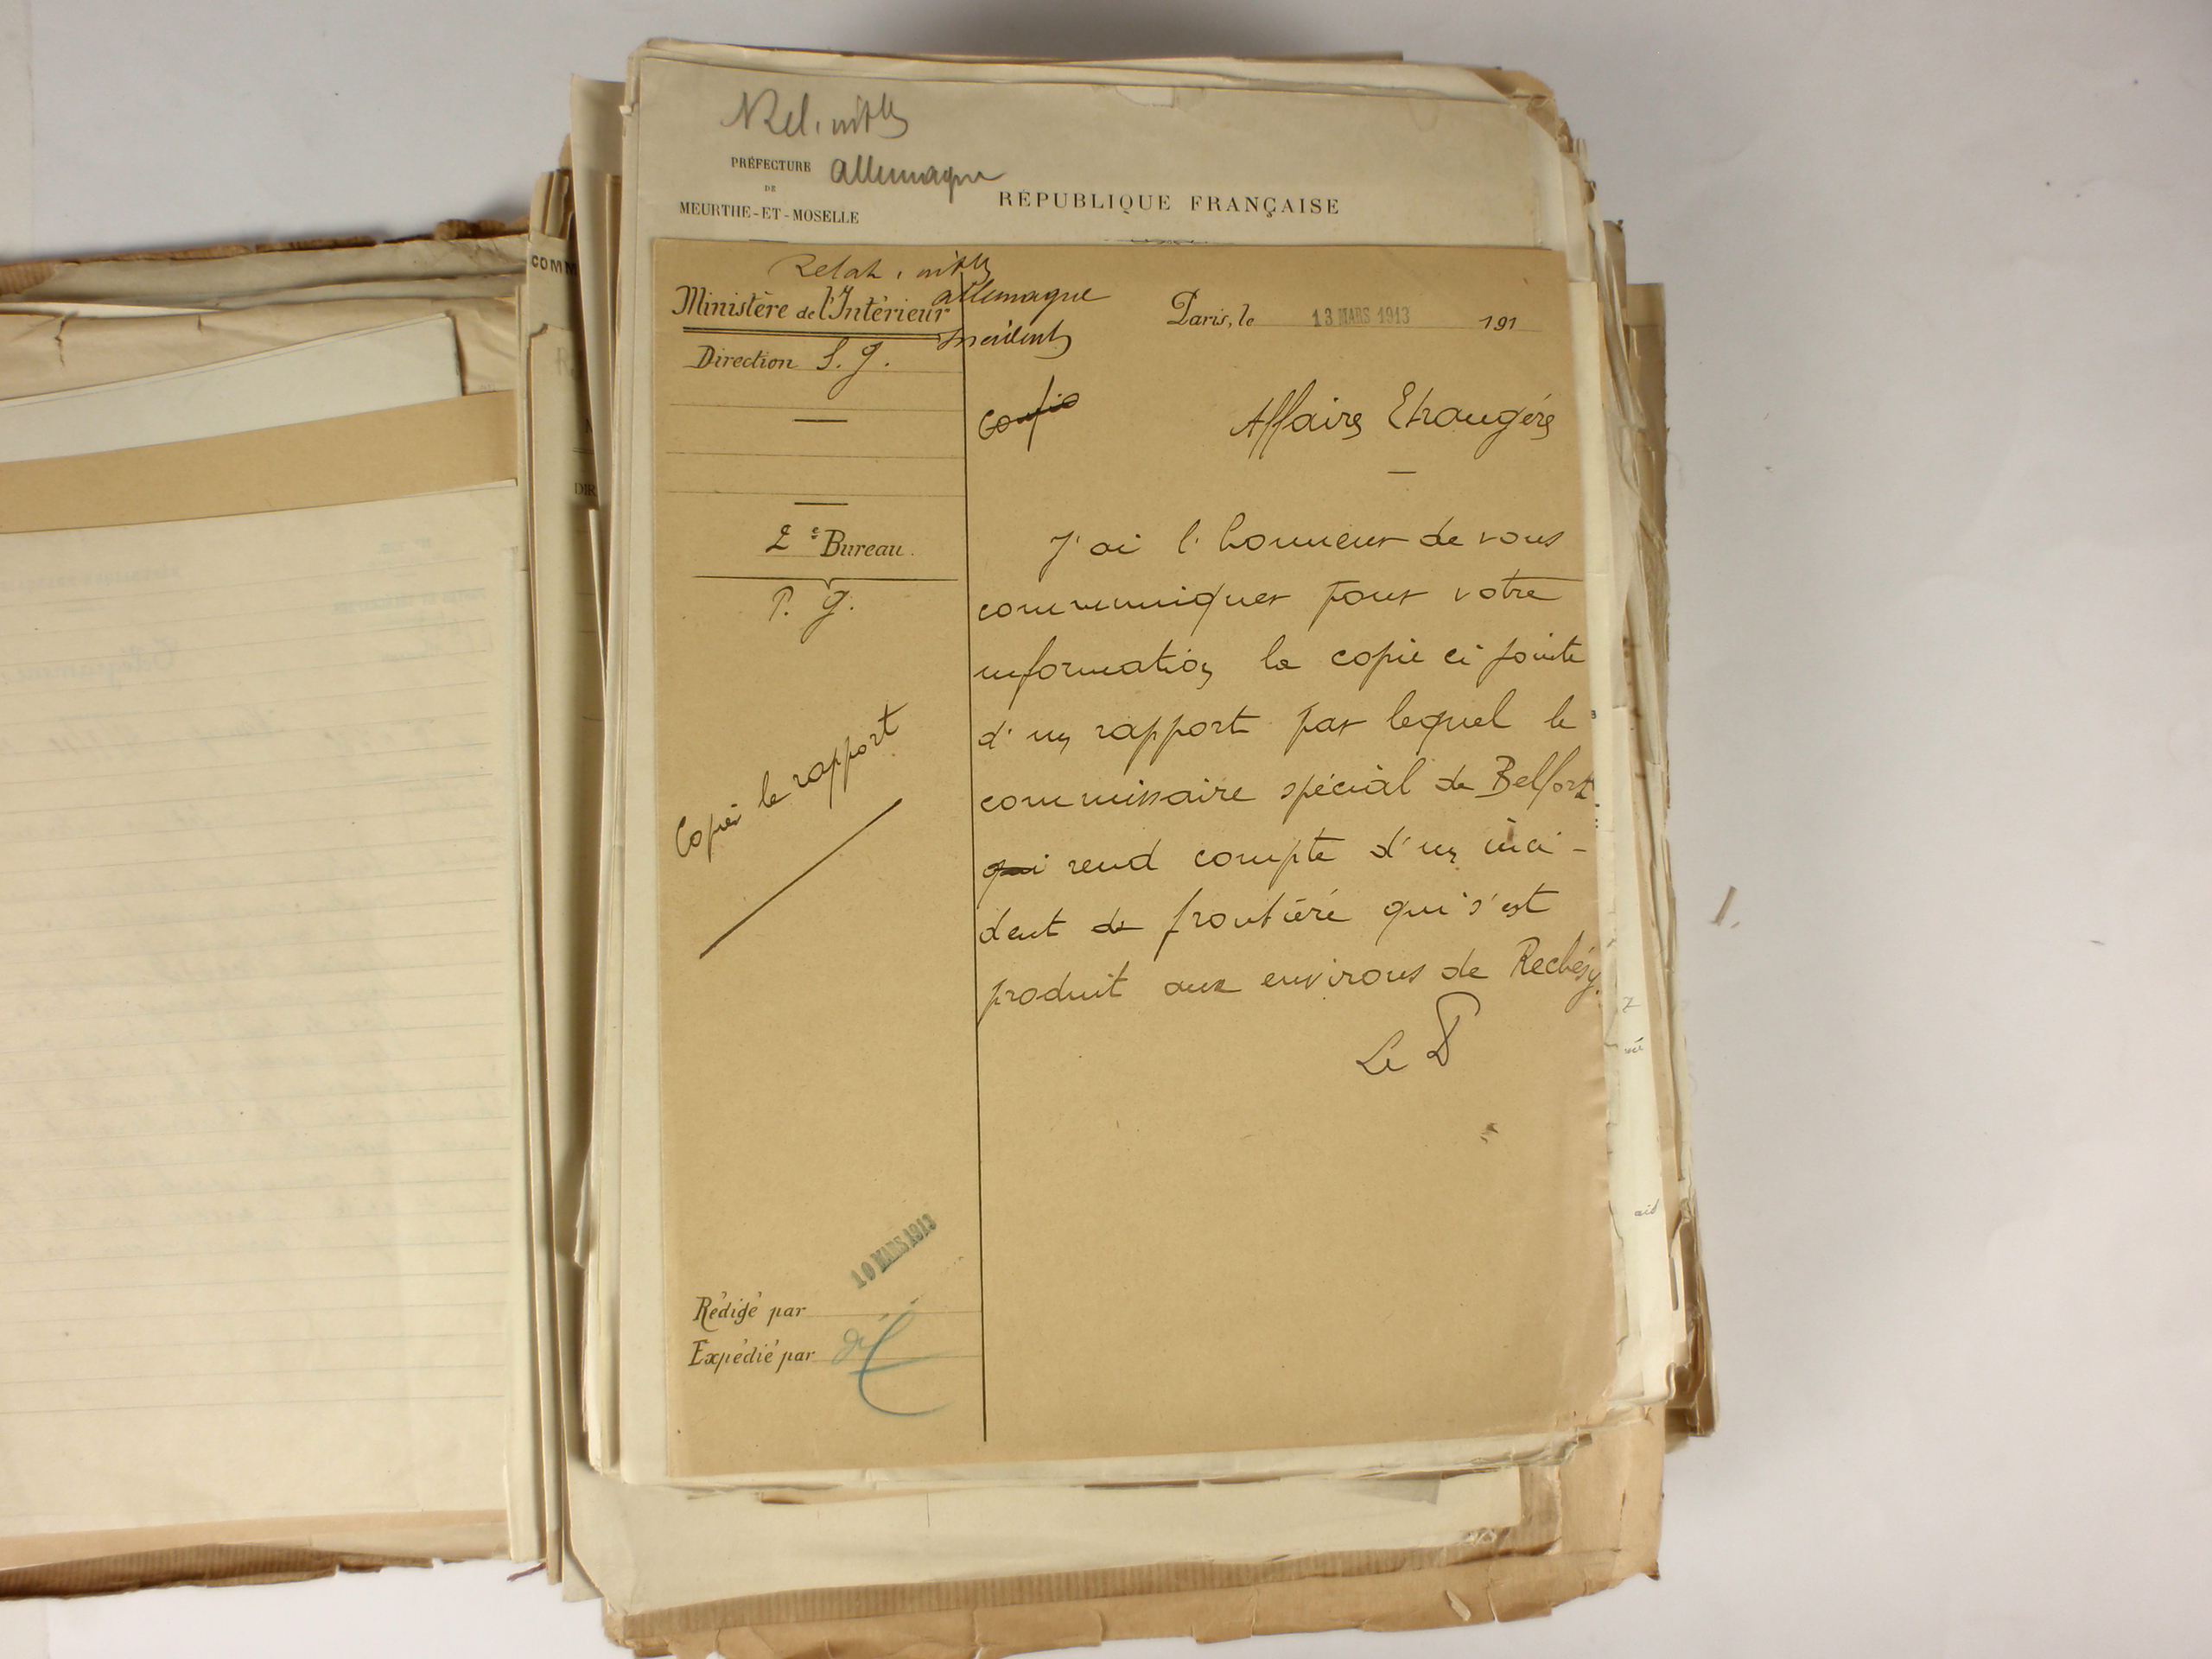 Rel. intles
Allemagne
PRÉFECTURE
DE
MEURTHE-ET-MOSELLE
RÉPUBLIQUE FRANÇAISE
COMM
DIR
Relat. intles
Allemagne
Incidents
Ministère de l'Intérieur
Direction S. g.
2e Bureau.
P. g.
Copier le rapport
Paris, le 13 MARS 1913 191
Confid
Affaires Etrangères
J'ai l'honneur de vous
communiquer pour votre
information la copie ci jointe
d'un rapport par lequel le
commissaire spécial de Belfort
qui rend compte d'un inci-
dent de frontière qui s'est
produit aux environs de Rechésy.
Le P
10 MARS 1913
Rédigé par
Expédié par